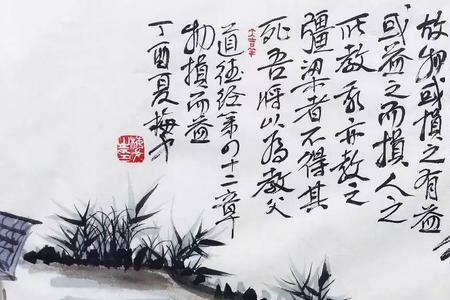 故物或損之有益
或益之而損人之
所教我亦教之
彊梁者不得其
死吾將以為教父
道徳经第四十二章
物損而益
丁酉夏梅